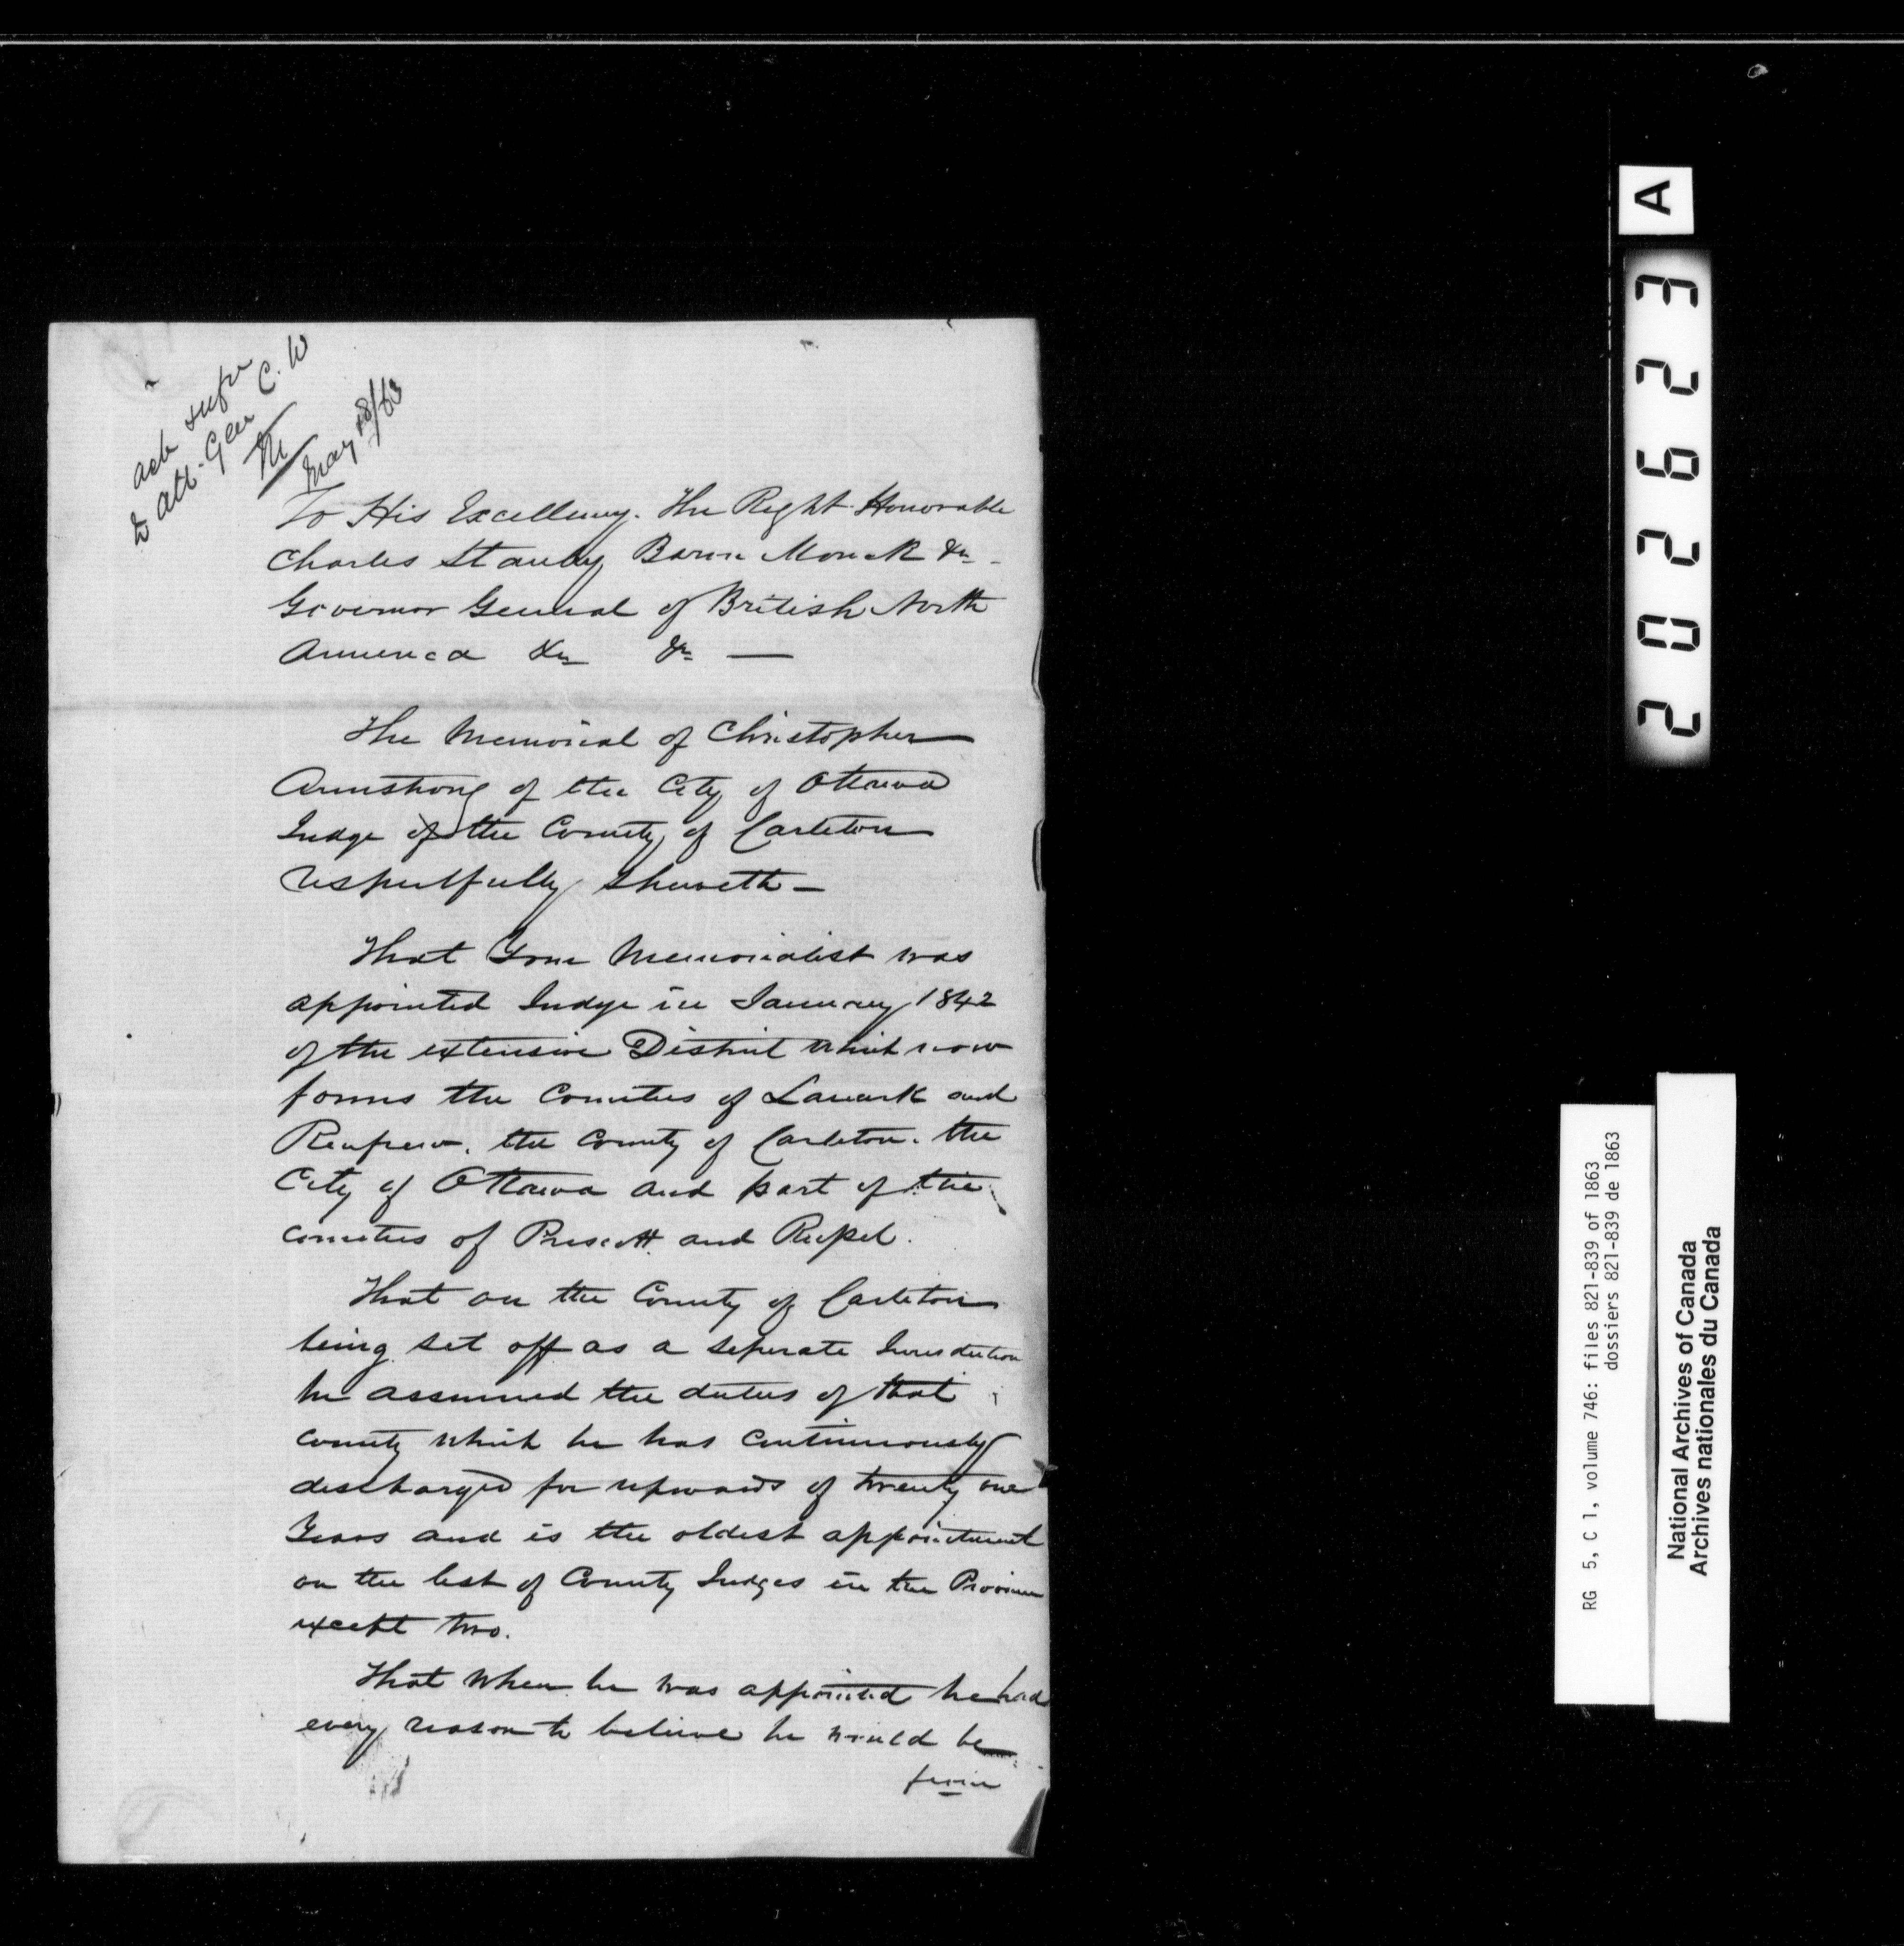 ack & refer
to Att. Gen C. W
M
May 18/63
To His Excellency. The Right Honorable
Charles Stanley Baron Monck &c -
Governor General of British North
America &c &c —
The Memorial of Christopher
Armstrong of the City of Ottawa
Judge of the County of Carleton
respectfully sheweth -
That Your Memorialist was
appointed Judge in January 1842
of the extensive District which now
forms the Counties of Lanark and
Renfrew. the County of Carleton. the
City of Ottawa and part of the
counties of Prescott and Russel.
That on the County of Carleton
being set off as a seperate Jurisdiction
he assumed the duties of that
county which he has continuously
discharged for upwards of twenty one
Years and is the oldest appointment
on the list of County Judges in the Province
except two.
That when he was appointed he had
every reason to believe he would be
A
202623
RG 5, C 1, volume 746: files 821-839 of 1863
dossiers 821-839 de 1863
National Archives of Canada
Archives nationales du Canada